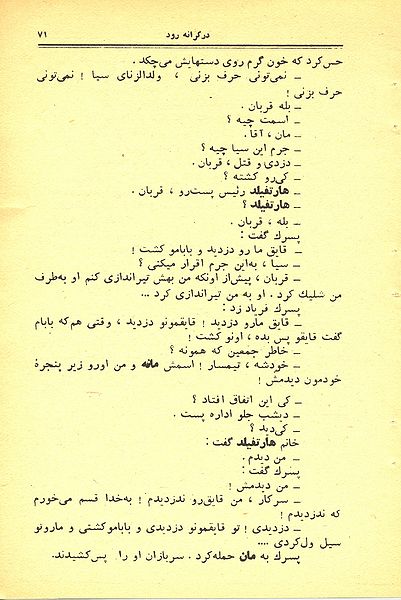 درگرانه رود ۷۱
حس‌کرد که خون گرم روی دستهایش می‌چکد .
ــ نمی‌تونی حرف بزنی ، ولدالزنای سیا ! نمی‌تونی
حرف بزنی !
ــ بله قربان .
ــ اسمت چیه ؟
ــ مان ، آقا .
ــ جرم این سیا چیه ؟
ــ دزدی و قتل ، قربان .
ــ کی‌رو کشته ؟
ــ هارتفیلد رئیس پست‌رو ، قربان .
ــ هارتفیلد ؟
ــ بله ، قربان .
پسرك گفت :
ــ قایق ما رو دزدید و بابامو کشت !
ــ سیا ، به‌این جرم اقرار میکنی ؟
ــ قربان ، پیش‌از اونکه من بهش تیراندازی کنم او به‌طرف
من شلیك کرد . او به من تیراندازی کرد ...
پسرك فریاد زد :
ــ قایق مارو دزدید ! قایقمونو دزدید ، وقتی هم‌که بابام
گفت قایقو پس بده ، اونو کشت !
ــ خاطر جمعین که همونه ؟
ــ خودشه ، تیمسار ! اسمش مانه و من اورو زیر پنجرهٔ
خودمون دیدمش !
ــ کی این اتفاق افتاد ؟
ــ دیشب جلو اداره پست .
ــ کی‌دید ؟
خانم هارتفیلد گفت :
ــ من دیدم .
پسرك گفت :
ــ من دیدمش !
ــ سرکار ، من قایق‌رو ندزدیدم ! به‌خدا قسم می‌خورم
که ندزدیدم !
ــ دزدیدی ! تو قایقمونو دزدیدی و باباموکشتی و مارونو
سیل ول‌کردی ....
پسرك به مان حمله‌کرد . سربازان او را پس‌کشیدند.